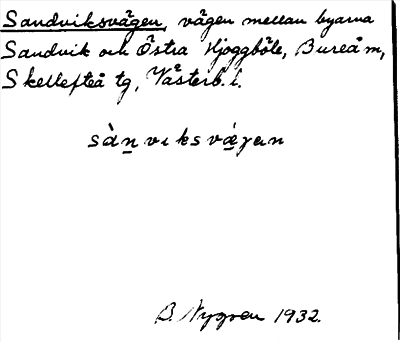 Sandviksvägen, vägen mellan byarna
Sandvik och Östra Hjoggböle, Bureå m,
Skellefteå tg, Västerb. l.
sàn̲viksvǽ̲gen
B. Nygren 1932.